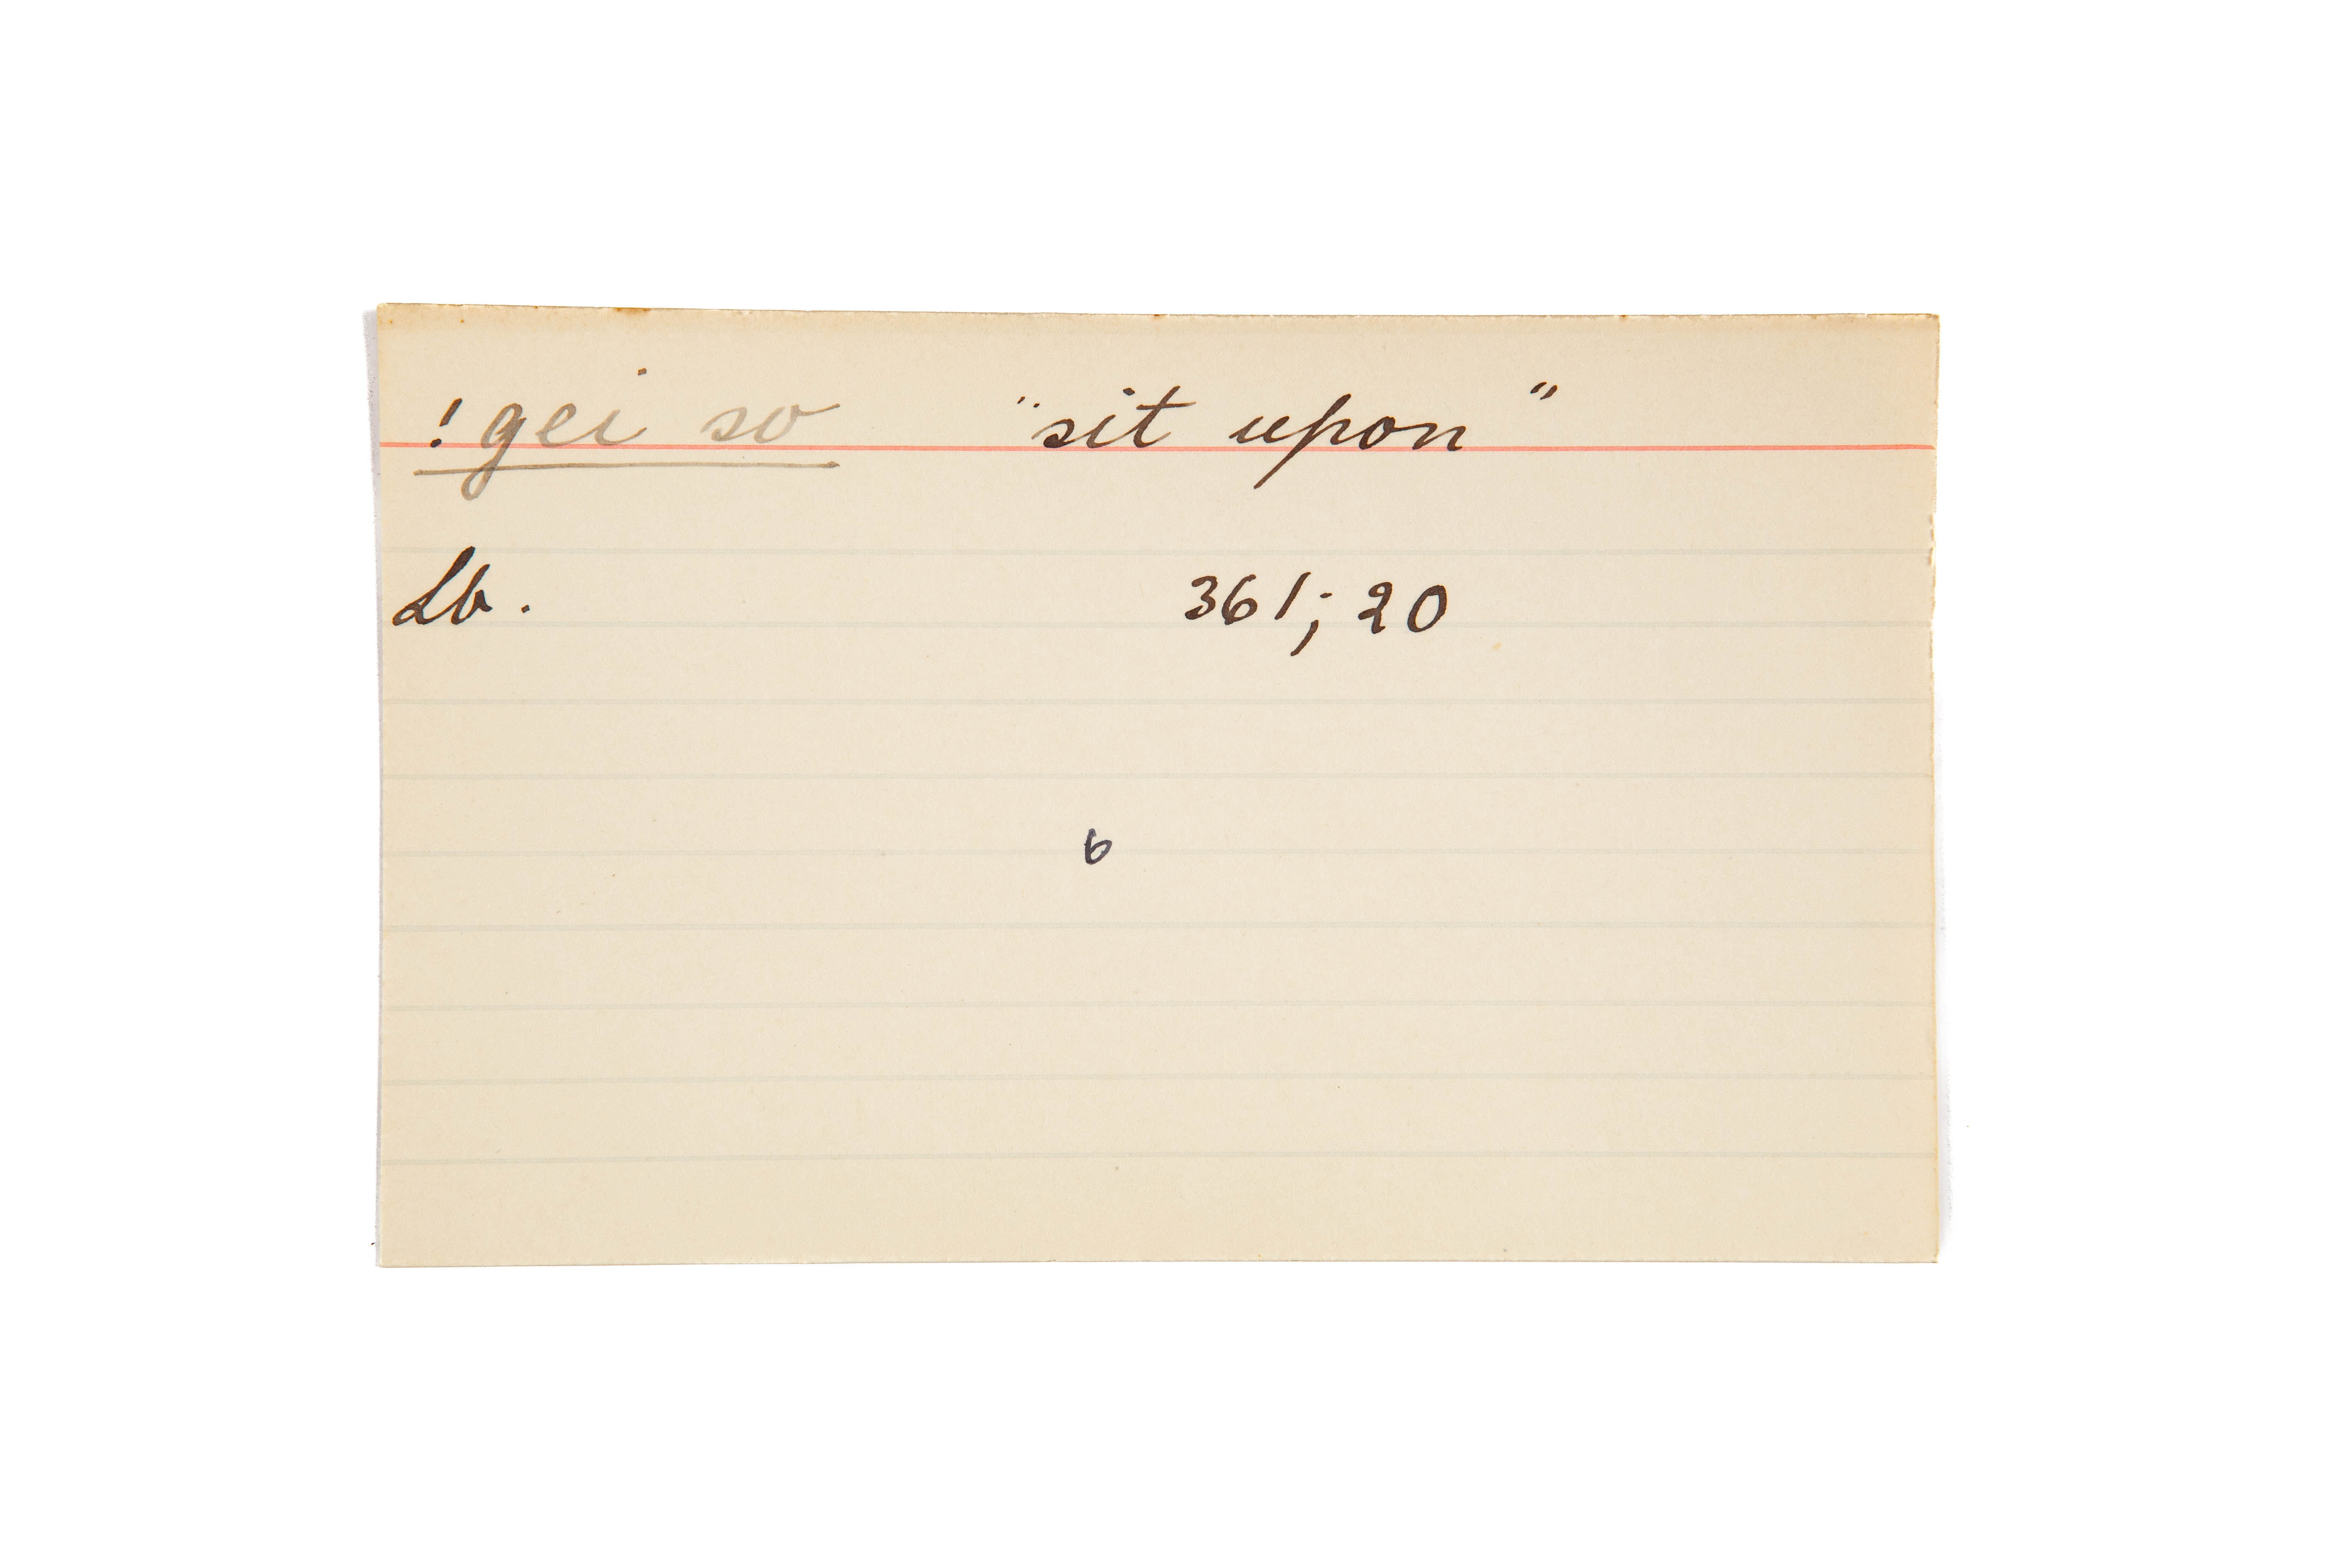 !gei so "sit upon"
Lb. 361; 20
6